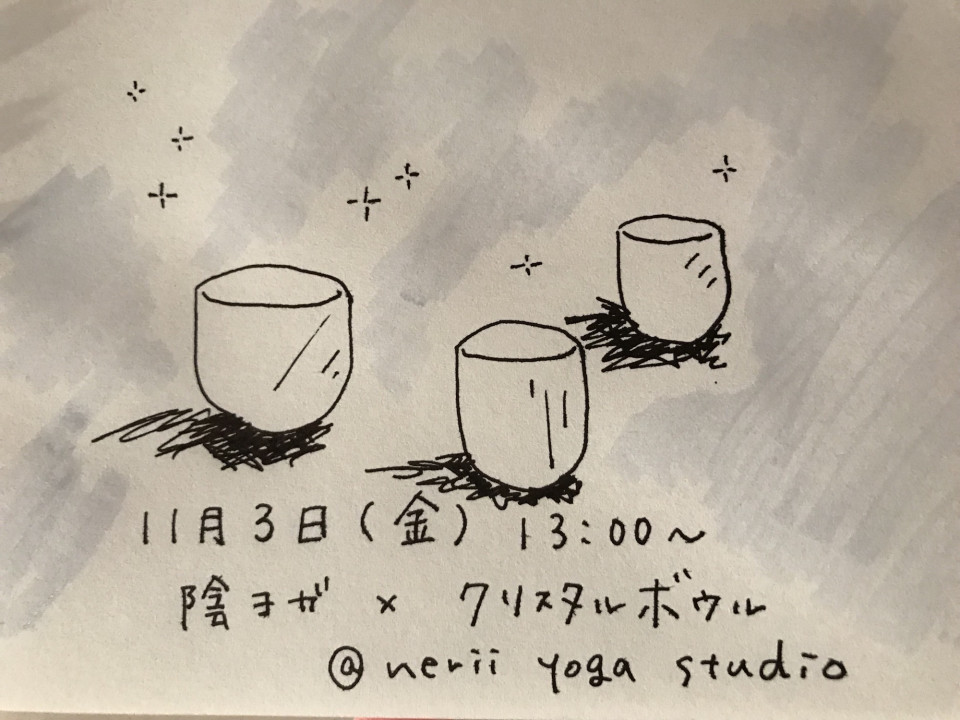 11月3日(金) 13:00〜
陰ヨガ × クリスタルボウル
@ nerii yoga studio